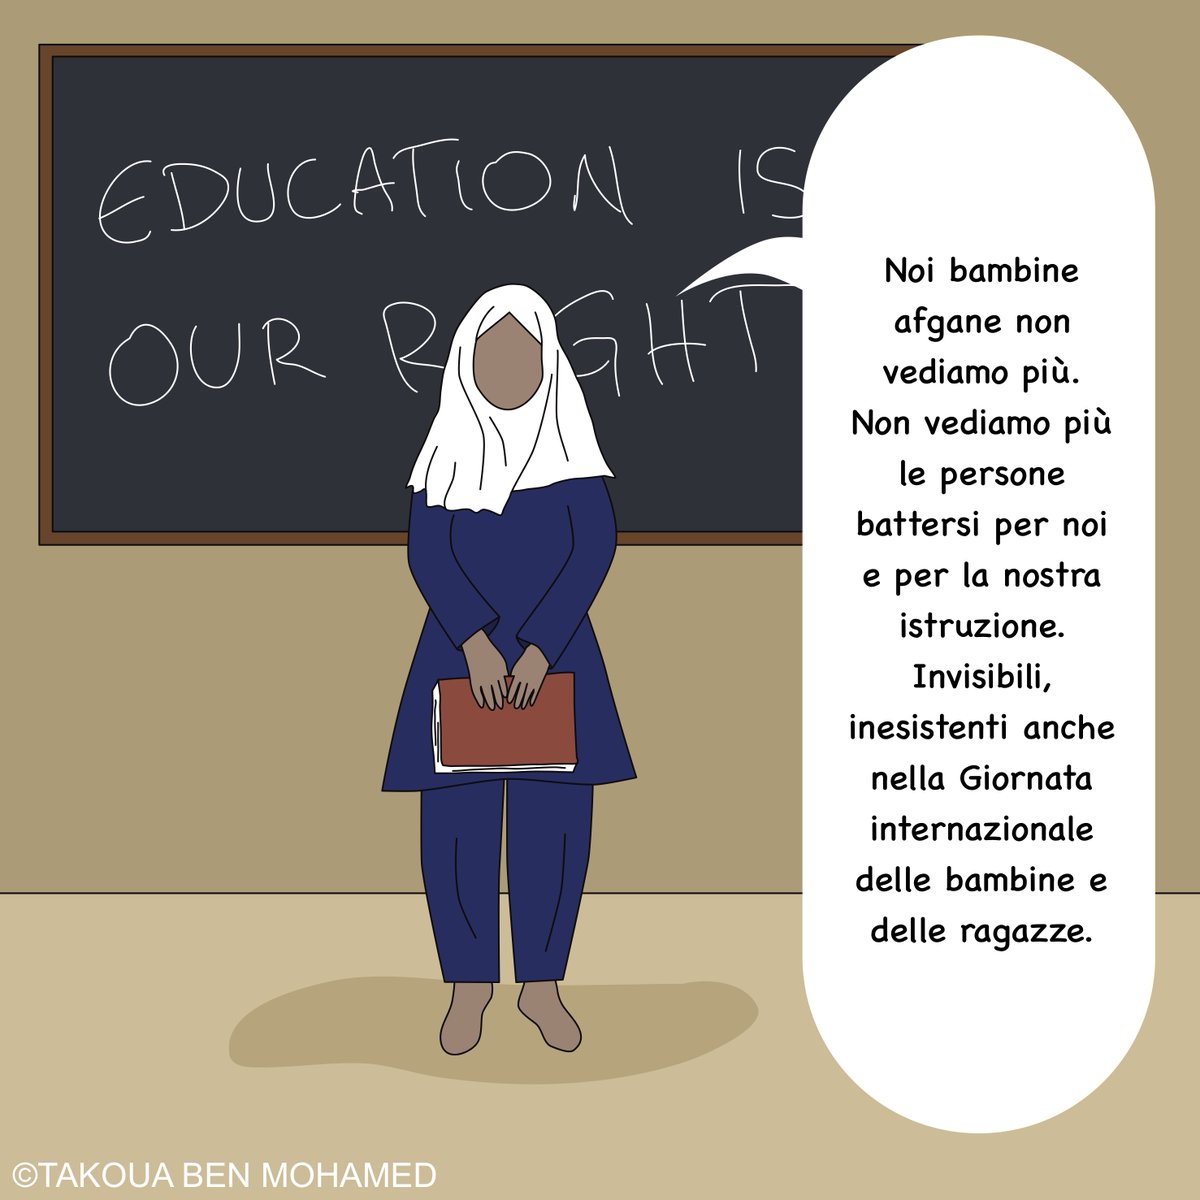 EDUCATION IS
OUR RIGHT
Noi bambine
afgane non
vediamo più.
Non vediamo più
le persone
battersi per noi
e per la nostra
istruzione.
Invisibili,
inesistenti anche
nella Giornata
internazionale
delle bambine e
delle ragazze.
©TAKOUA BEN MOHAMED